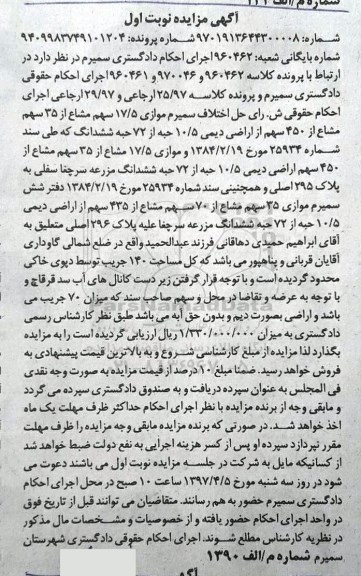 شماره م/الف ۱۲۱
آگهی مزایده نوبت اول
شماره: ۹۷۰۱۹۱۳۶۴۴۳۰۰۰۰۸ شماره پرونده: ۹۴۰۹۹۸۳۷۴۹۱۰۱۲۰۴
شماره بایگانی شعبه: ۹۶۰۴۶۲ اجرای احکام دادگستری سمیرم در نظر دارد در
ارتباط با پرونده کلاسه ۹۶۰۴۶۲ و ۹۷۰۰۴۶ و ۹۶۰۴۶۱ اجرای احکام حقوقی
دادگستری سمیرم و پرونده کلاسه ۲۵/۹۷ ارجاعی و ۲۹/۹۷ ارجاعی اجرای
احکام حقوقی ش. رای حل اختلاف سمیرم موازی ۱۷/۵ سهم مشاع از ۳۵ سهم
مشاع از ۴۵۰ سهم از اراضی دیمی ۱۰/۵ حبه از ۷۲ حبه ششدانگ که طی سند
شماره ۲۵۹۳۴ مورخ ۱۳۸۴/۲/۱۹ و موازی ۱۷/۵ سهم مشاع از ۳۵ سهم مشاع از
۴۵۰ سهم اراضی دیمی ۱۰/۵ حبه از ۷۲ حبه ششدانگ مزرعه سرچغا سفلی به
پلاک ۲۹۵ اصلی و همچنینی سند شماره ۲۵۹۳۴ مورخ ۱۳۸۴/۲/۱۹ دفتر شش
سمیرم موازی ۳۵ سهم مشاع از ۷۰ سهم مشاع از ۴۳۵ سهم از اراضی دیمی
۱۰/۵ حبه از ۷۲ حبه ششدانگ مزرعه سرچغا علیه پلاک ۲۹۶ اصلی متعلق به
آقای ابراهیم حمیدی دهاقانی فرزند عبدالحمید واقع در ضلع شمالی گاوداری
آقایان قربانی و پناهپور می باشد که کل مساحت ۱۴۰ جریب توسط دپوی خاکی
محدود گردیده است و با توجه قرار گرفتن زیر دست کانال های آب سد قرقاچ و
با توجه به عرضه و تقاضا در محل و سهم صاحب سند که میزان ۷۰ جریب می
باشد و اراضی بصورت دیم و بدون حق آبه می باشد طبق نظر کارشناس رسمی
دادگستری به میزان ۱/۳۳۰/۰۰۰/۰۰۰ ریال ارزیابی گردیده است را به مزایده
بگذارد لذا مزایده از مبلغ کارشناسی شروع و به بالاترین قیمت پیشنهادی به
فروش خواهد رسید. ضمنا مبلغ ۱۰ درصد از قیمت مزایده به صورت وجه نقدی
فی المجلس به عنوان سپرده دریافت و به صندوق دادگستری سپرده می گردد
و مابقی وجه از برنده مزایده با نظر اجرای احکام حداکثر ظرف مهلت یک ماه
اخذ خواهد شد. در صورتی که برنده مزایده مابقی وجه مزایده را ظرف مهلت
مقرر نپردازد سپرده او پس از کسر هزینه اجرایی به نفع دولت ضبط خواهد شد
از کسانیکه مایل به شرکت در جلسه مزایده نوبت اول می باشند دعوت می
شود در روز سه شنبه مورخ ۱۳۹۷/۴/۵ ساعت ۱۰ صبح در محل اجرای احکام
دادگستری سمیرم حضور به هم رسانند. متقاضیان می توانند قبل از تاریخ فوق
در واحد اجرای احکام حضور یافته و از خصوصیات و مشخصات مال مذکور
در نظریه کارشناس مطلع شوند. اجرای احکام حقوقی دادگستری شهرستان
سمیرم شماره م/الف ۱۳۹۰